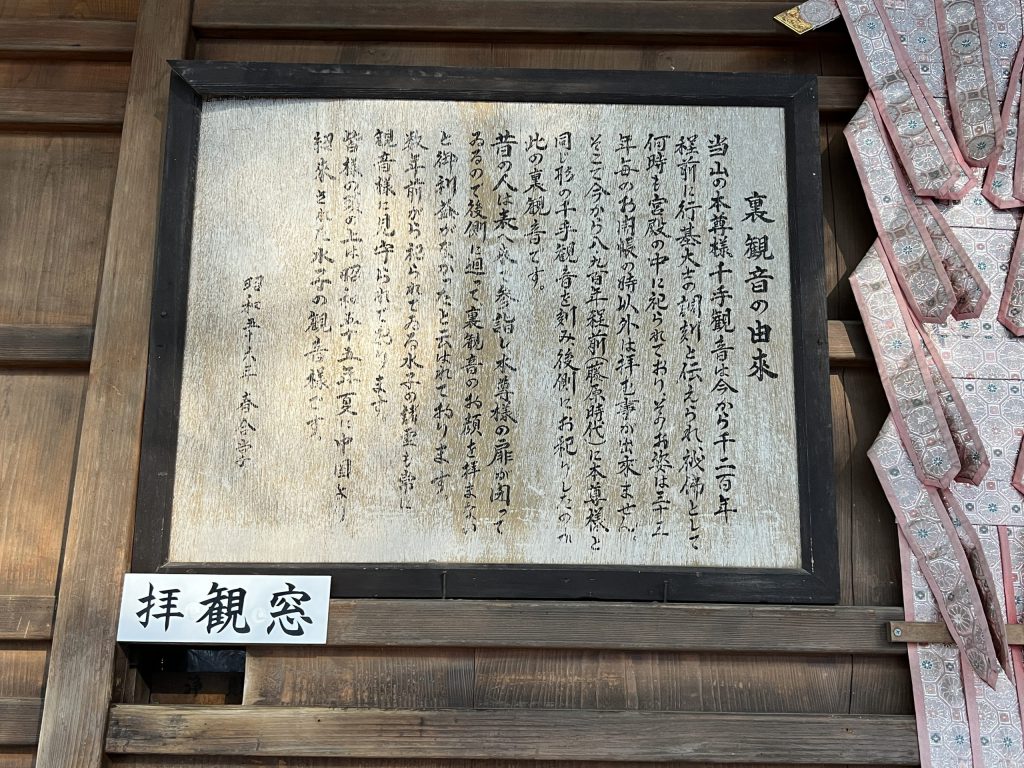 裏観音の由來
当山の本尊様千手観音は今から千二百年
程前に行基大士の調刻と伝えられ、秘佛として
何時も宮殿の中に祀られておりそのお姿は三十三
年毎のお開帳の時以外は拝む事が出來ません。
そこで今から八九百年程前(藤原時代)に本尊様と
同じ形の千手観音を刻み後側にお祀りしたのが
此の裏観音です。
昔の人は表へ参詣し本尊様の扉が閉って
ゐるので後側に廻って裏観音のお顔を拝まない
と御利益がなかったと云はれて居ります
数年前から祀られてゐる水子の諸霊も常に
観音様に見守られて居ります
皆様の頭の上は昭和五十五年夏に中国より
招來された水子の観音様です。
昭和五十六年 春
拝観窓